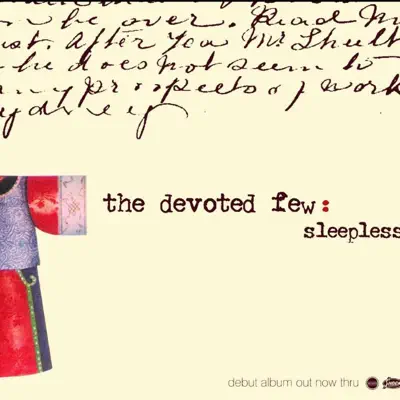 n be over. Read M
ust. After you Mr Shult
he does not seem to
any prospects of work
ydney
the devoted few:
sleepless
debut album out now thru